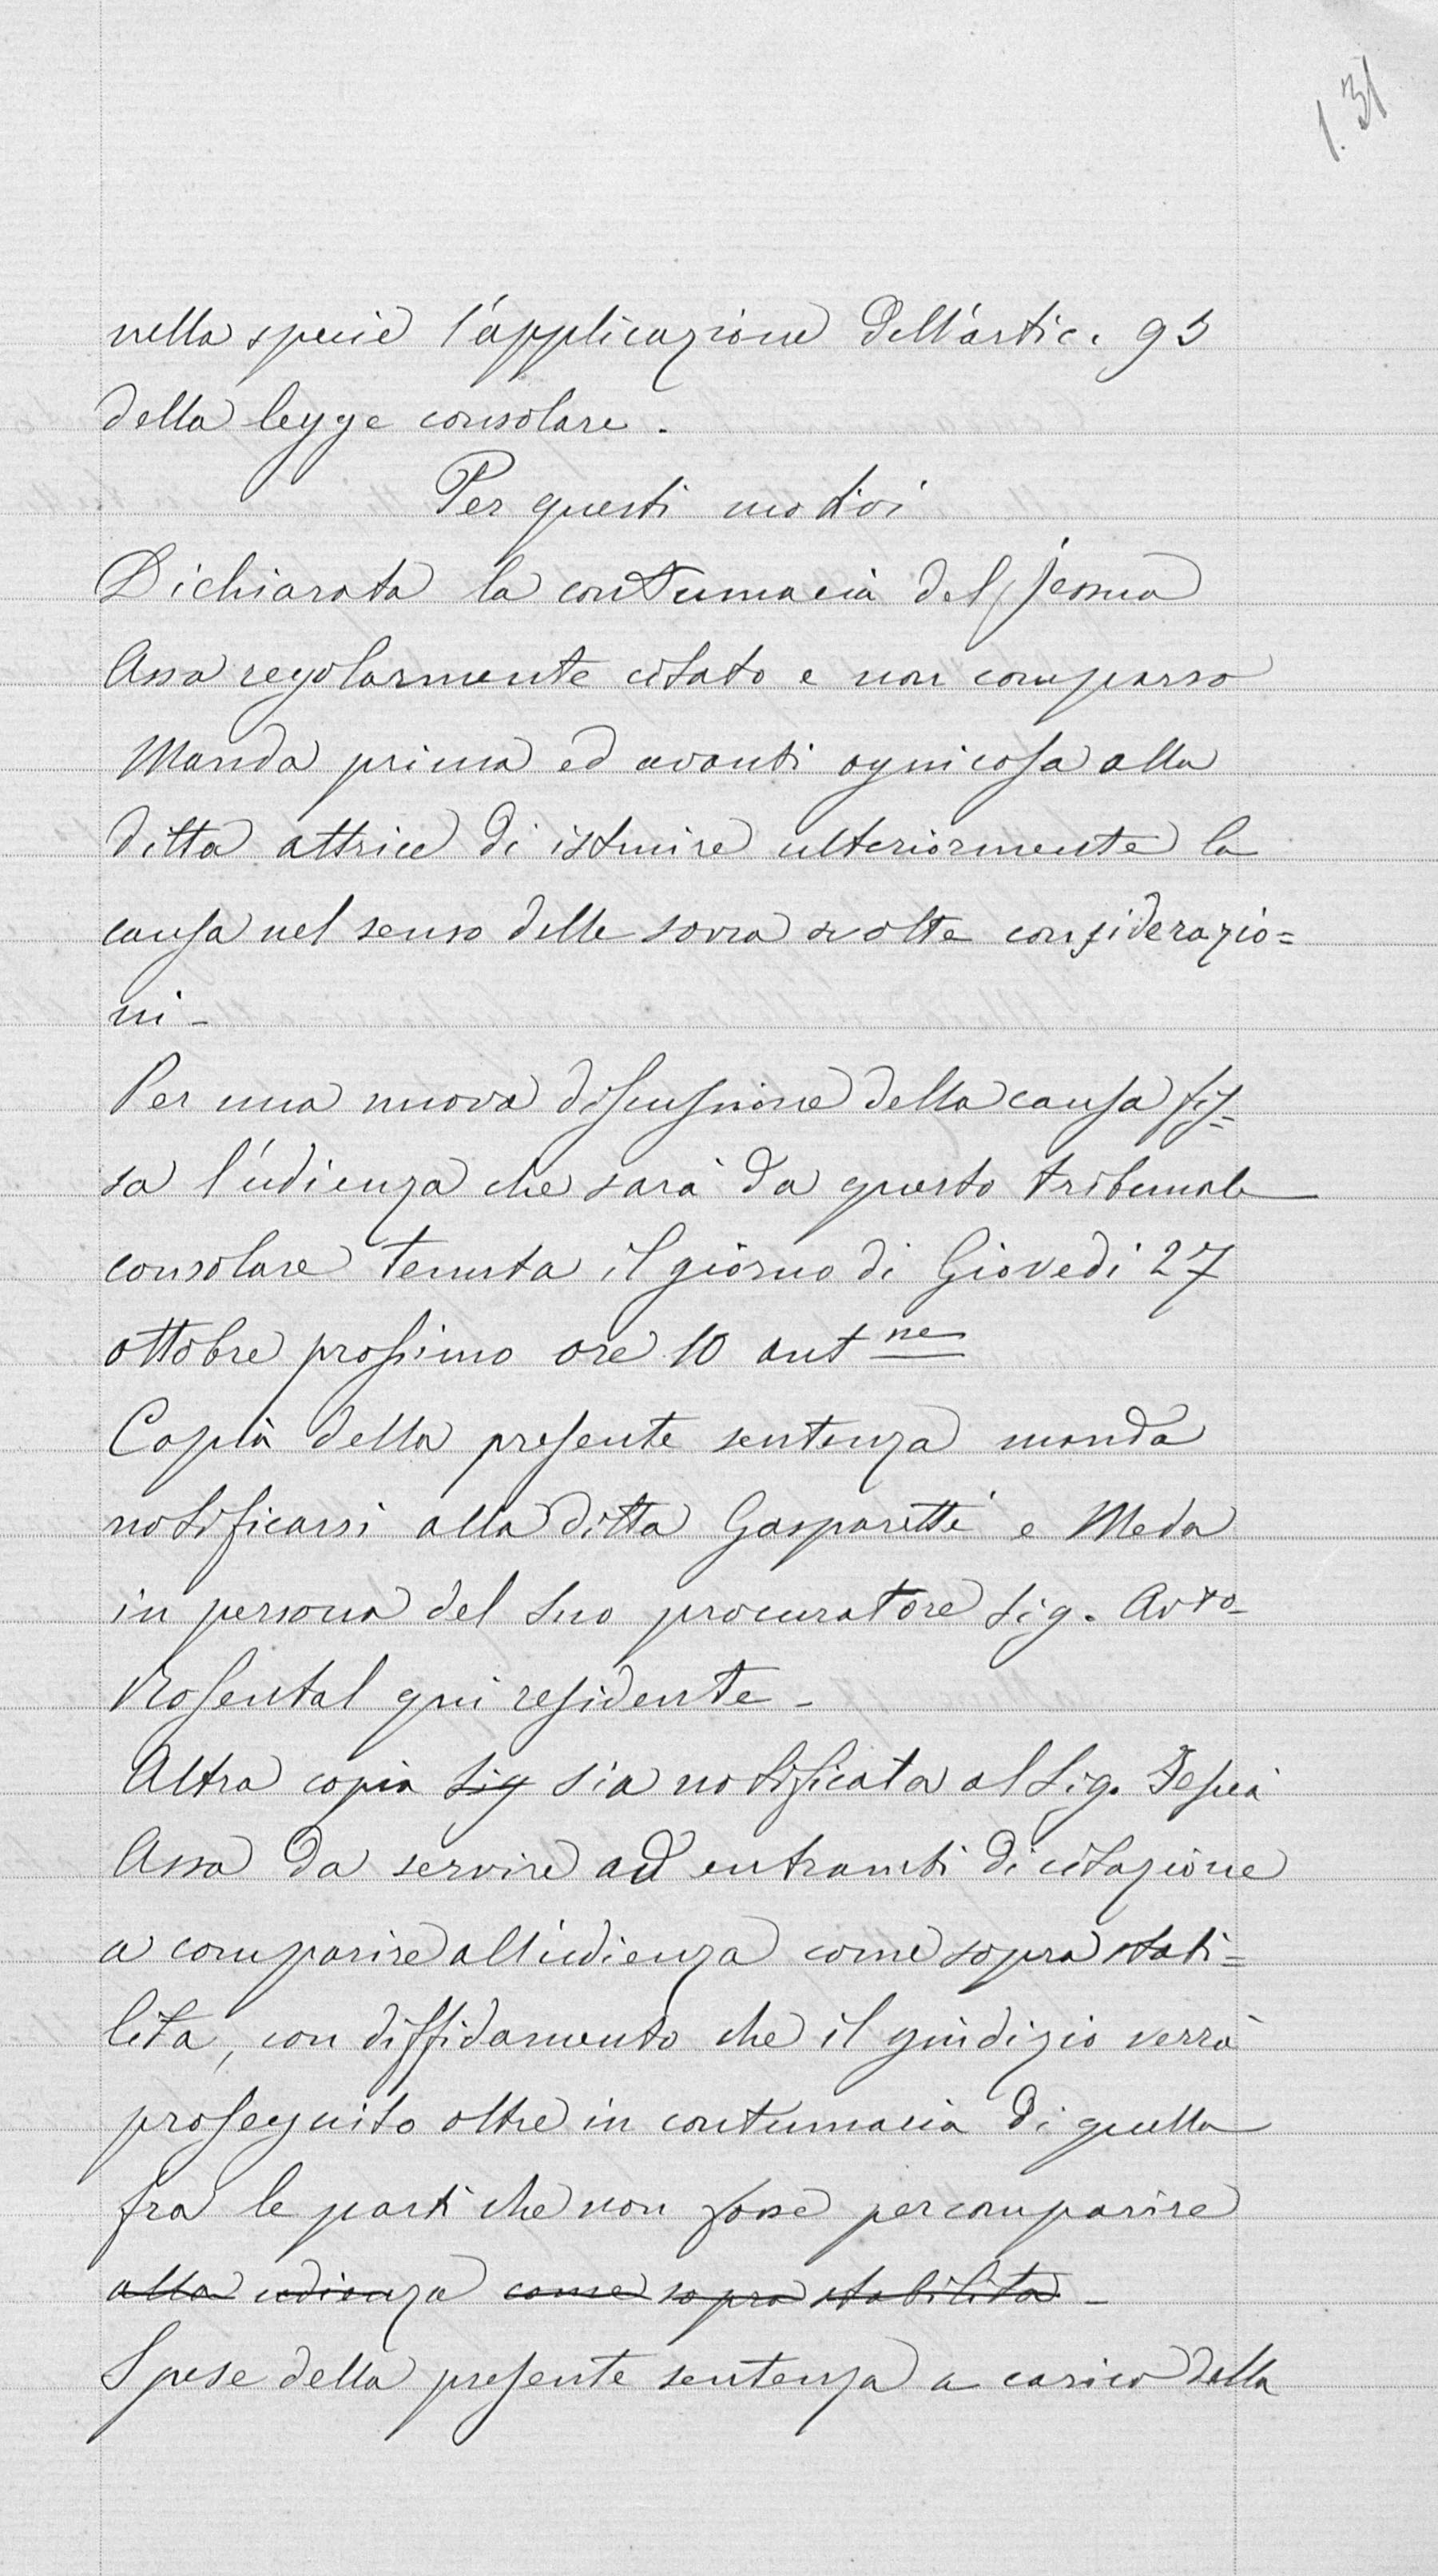 131
nella specie l'applicazione dell'artic. 93
della legge consolare.
Per questi motivi
Dichiarata la contumacia del Jessua
Assa regolarmente citato e non comparso
Manda prima ed avanti ognicosa alla
ditta attrice di istruire ulteriormente la
causa nel senso delle sovra svolte considerazio=
ni -
Per una nuova discussione della causa fis=
sa l'udienza che sarà da questo tribunale
consolare tenuta il giorno di Giovedi 27
ottobre prossimo ore 10 ant ne
Copia della presente sentenza manda
notificarsi alla ditta Gasparetti e Meda
in persona del suo procuratore sig. Avto
Rosental qui residente -
Altra copia sig sia notificata al Sig. Jesua
Assa da servire ad entrambi di citazione
a comparire all'udienza come sopra stabi=
lita, con diffidamento che il giudizio verrà
proseguito oltre in contumacia di quella
fra le parti che non fosse per comparire
alla udienza come sopra stabilita -
Spese della presente sentenza a carico della